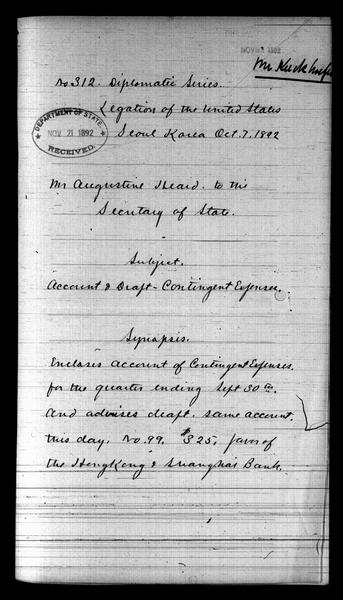 NOV 21 1892
No 312. Diplomatic Series.
Legation of the United States
DEPARTMENT OF STATE
NOV. 21 1892
RECEIVED.
Seoul Korea Oct. 7. 1892
Mr Augustine Heard. to the
Secretary of State.
Subject.
Account & Draft - Contingent Expenses.
Synopsis.
Encloses account of Contingent Expenses.
for the quarter ending Sept 30th.
And advises draft. same account.
this day. No. 99. $325, favor of
the HongKong & Shanghai Bank.